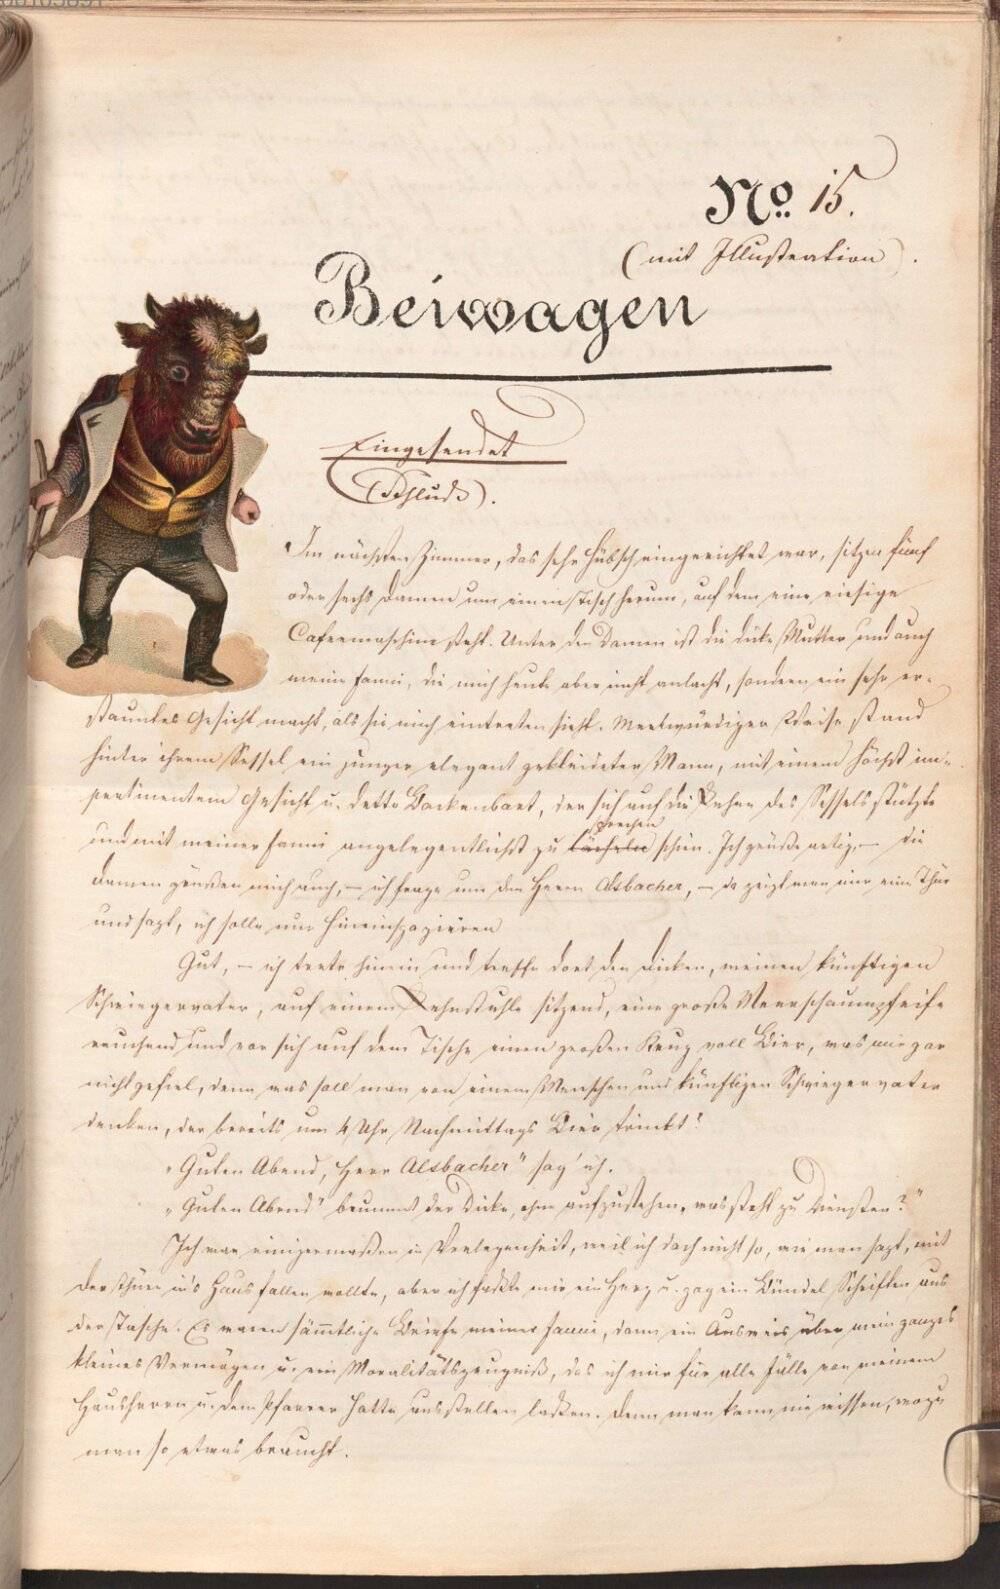 No. 15.
(mit Illustration).
Beiwagen
Eingesendet
(Schluß).
Im nächsten Zimmer, das sehr hübsch eingerichtet war, sitzen fünf
oder sechs Damen um einen Tisch herum, auf dem eine riesige
Cafeemaschine steht. Unter den Damen ist die dicke Mutter und auch
meine Fanni, die mich heute aber nicht anlacht, sondern ein sehr er-
stauntes Gesicht macht, als sie mich eintreten sieht. Merkwürdiger Weise stand
hinter ihrem Sessel ein junger elegant gekleideter Mann, mit einem höchst im-
pertinentem Gesicht u. detto Backenbart, der sich auf die Lehne des Sessels stützte
und mit meiner Fanni angelegentlichst zu lächeln sprechen schien. Ich grüße artig, – die
Damen grüßen mich auch, – ich frage um den Herrn Alsbacher, – da zeigt man mir eine Thür
und sagt, ich solle nur hineinspazieren
Gut, – ich trete hinein und treffe dort den Dicken, meinen künftigen
Schwiegervater, auf einem Lehnstuhle sitzend, eine große Meerschaumpfeife
rauchend und vor sich auf dem Tische einen großen Krug voll Bier, was mir gar
nicht gefiel, denn was soll man von einem Menschen und künftigen Schwiegervater
denken, der bereits um 4 Uhr Nachmittags Bier trinkt!
„Guten Abend, Herr Alsbacher" sag' ich.
„Guten Abend" brummt der Dicke, ohne aufzustehen, was steht zu Diensten?"
Ich war einigermaßen in Verlegenheit, weil ich doch nicht so, wie man sagt, mit
der Thüre in's Haus fallen wollte, aber ich faßte mir ein Herz u. zog ein Bündel Schriften aus
der Tasche. Es waren sämmtliche Briefe meiner Fanni, dann ein Ausweis über mein ganzes
kleines Vermögen u. ein Moralitätszeugniß, das ich mir für alle Fälle von meinem
Hausherrn u. dem Pfarrer hatte ausstellen laßen. Denn man kann nie wissen, wozu
man so etwas braucht.